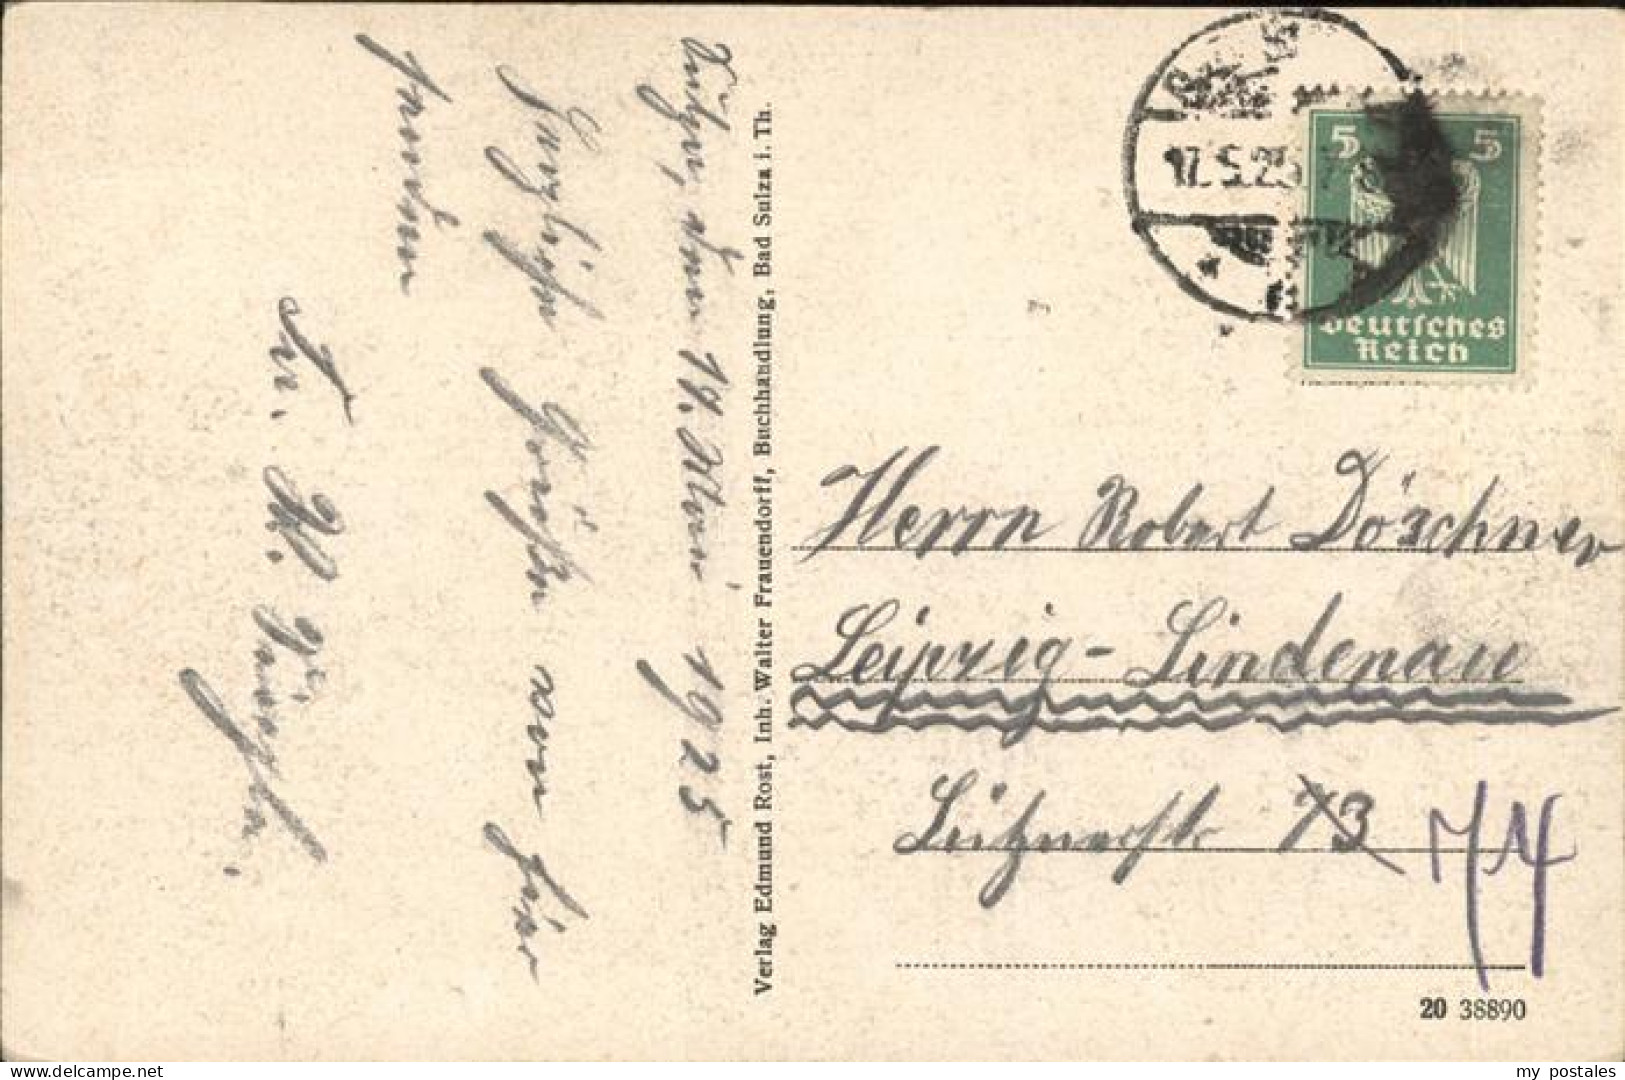 Sulza, den 17. Mai 1925
Herzliche Grüße von hier
senden
Verlag Edmund Rost, Inh. Walter Frauendorff, Buchhandlung, Bad Sulza i. Th.
17.5.25
5 5
Deutsches
Reich
Herrn Robert Döschner
Leipzig-Lindenau
Lütznerstr 73 74
20 38890
my postales